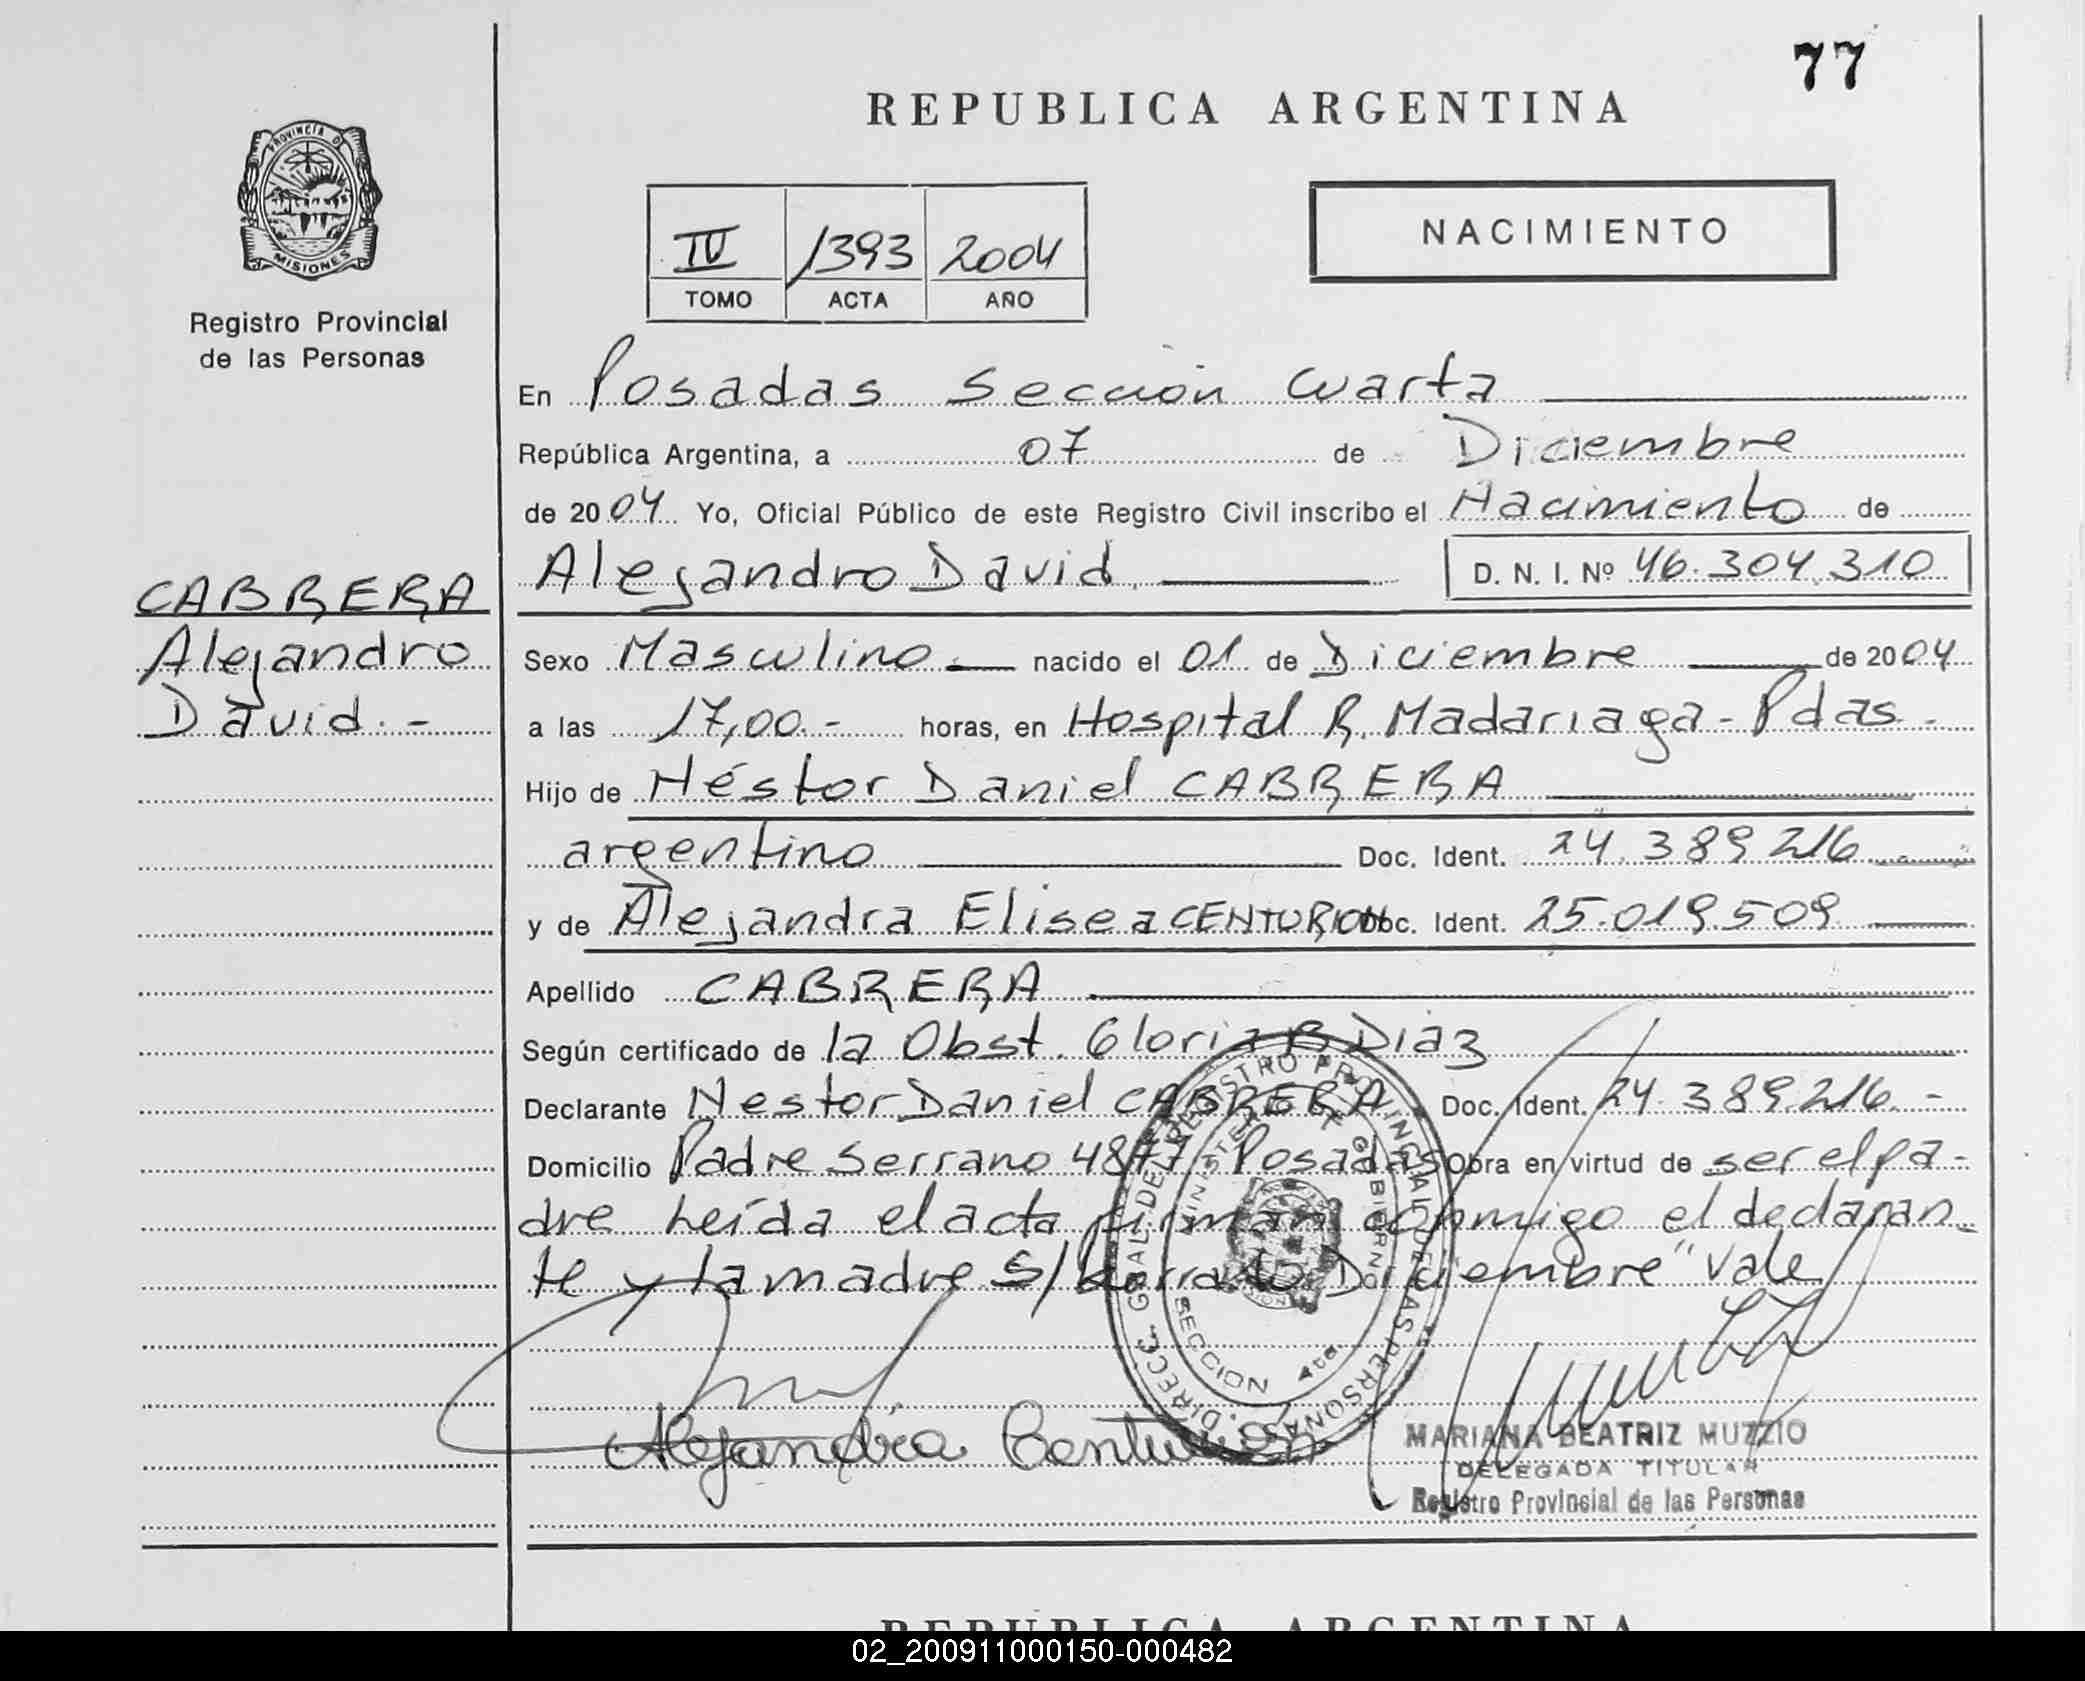 77
REPUBLICA ARGENTINA
PROVINCIA D
MISIONES
Registro Provincial
de las Personas
IV 1393 2004
TOMO ACTA AÑO
NACIMIENTO
En Posadas Sección Cuarta
República Argentina, a 07 de Diciembre
de 2004 Yo, Oficial Público de este Registro Civil inscribo el Nacimiento de
Alejandro David. D. N. I. Nº 46.304.310
CABRERA
Alejandro
David.-
Sexo Masculino nacido el 01 de Diciembre de 2004
a las 17,00.- horas, en Hospital R. Madariaga - Pdas -
Hijo de Néstor Daniel CABRERA
argentino Doc. Ident. 24.389.216
y de Alejandra Elisea CENTURION Doc. Ident. 25.019.509
Apellido CABRERA
Según certificado de la Obst. Gloria B Diaz
Declarante Nestor Daniel CABRERA Doc. Ident. 24.389.216.-
Domicilio Padre Serrano 4877 Posadas Obra en virtud de ser el pa-
dre Leída el acta firman conmigo el declaran-
te y la madre S/borrado Diciembre" Vale
DIRECC. GRAL. DEL REGISTRO PROVINCIAL DE LAS PERSONAS
MINISTERIO DE GOBIERNO
SECCION 4ta
Alejandra Centurión
MARIANA BEATRIZ MUZZIO
DELEGADA TITULAR
Registro Provincial de las Personas
REPUBLICA ARGENTINA
02_200911000150-000482